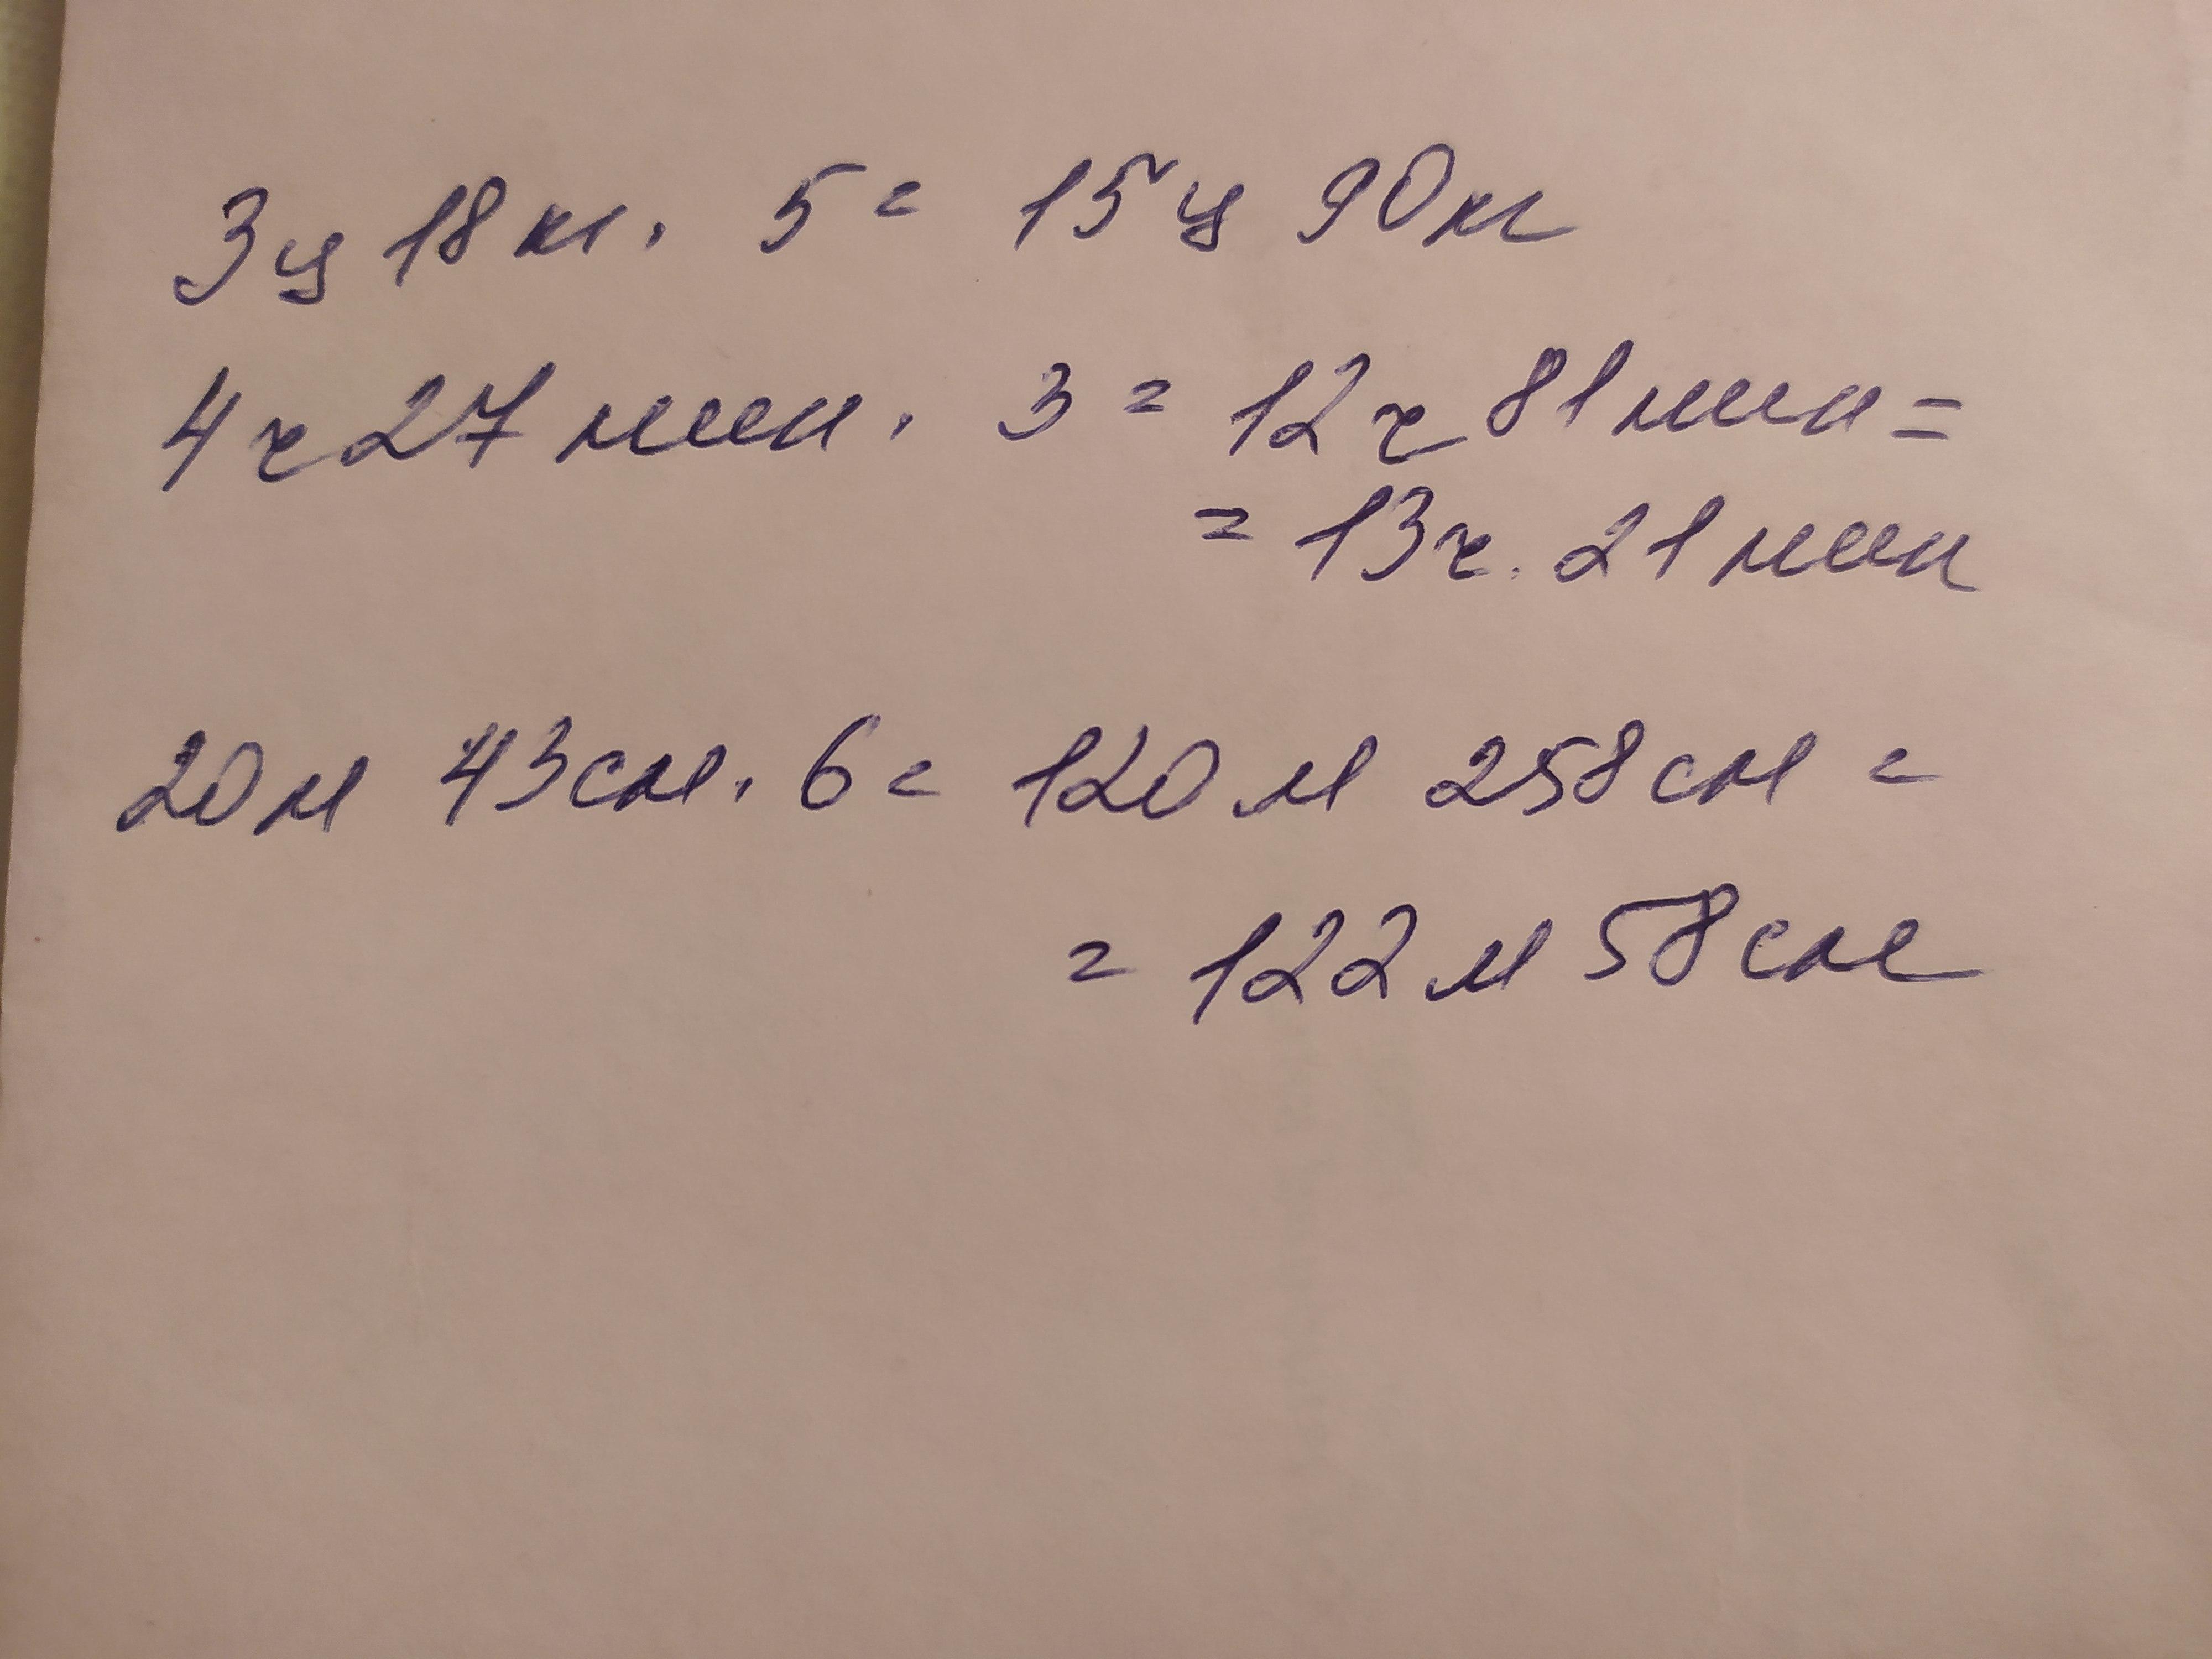 3ц 18кг. 5 = 15ц 90кг
4ч 27 мин. 3 = 12ч 81мин =
= 13ч. 21мин
20м 43см. 6 = 120м 258см =
= 122м 58см